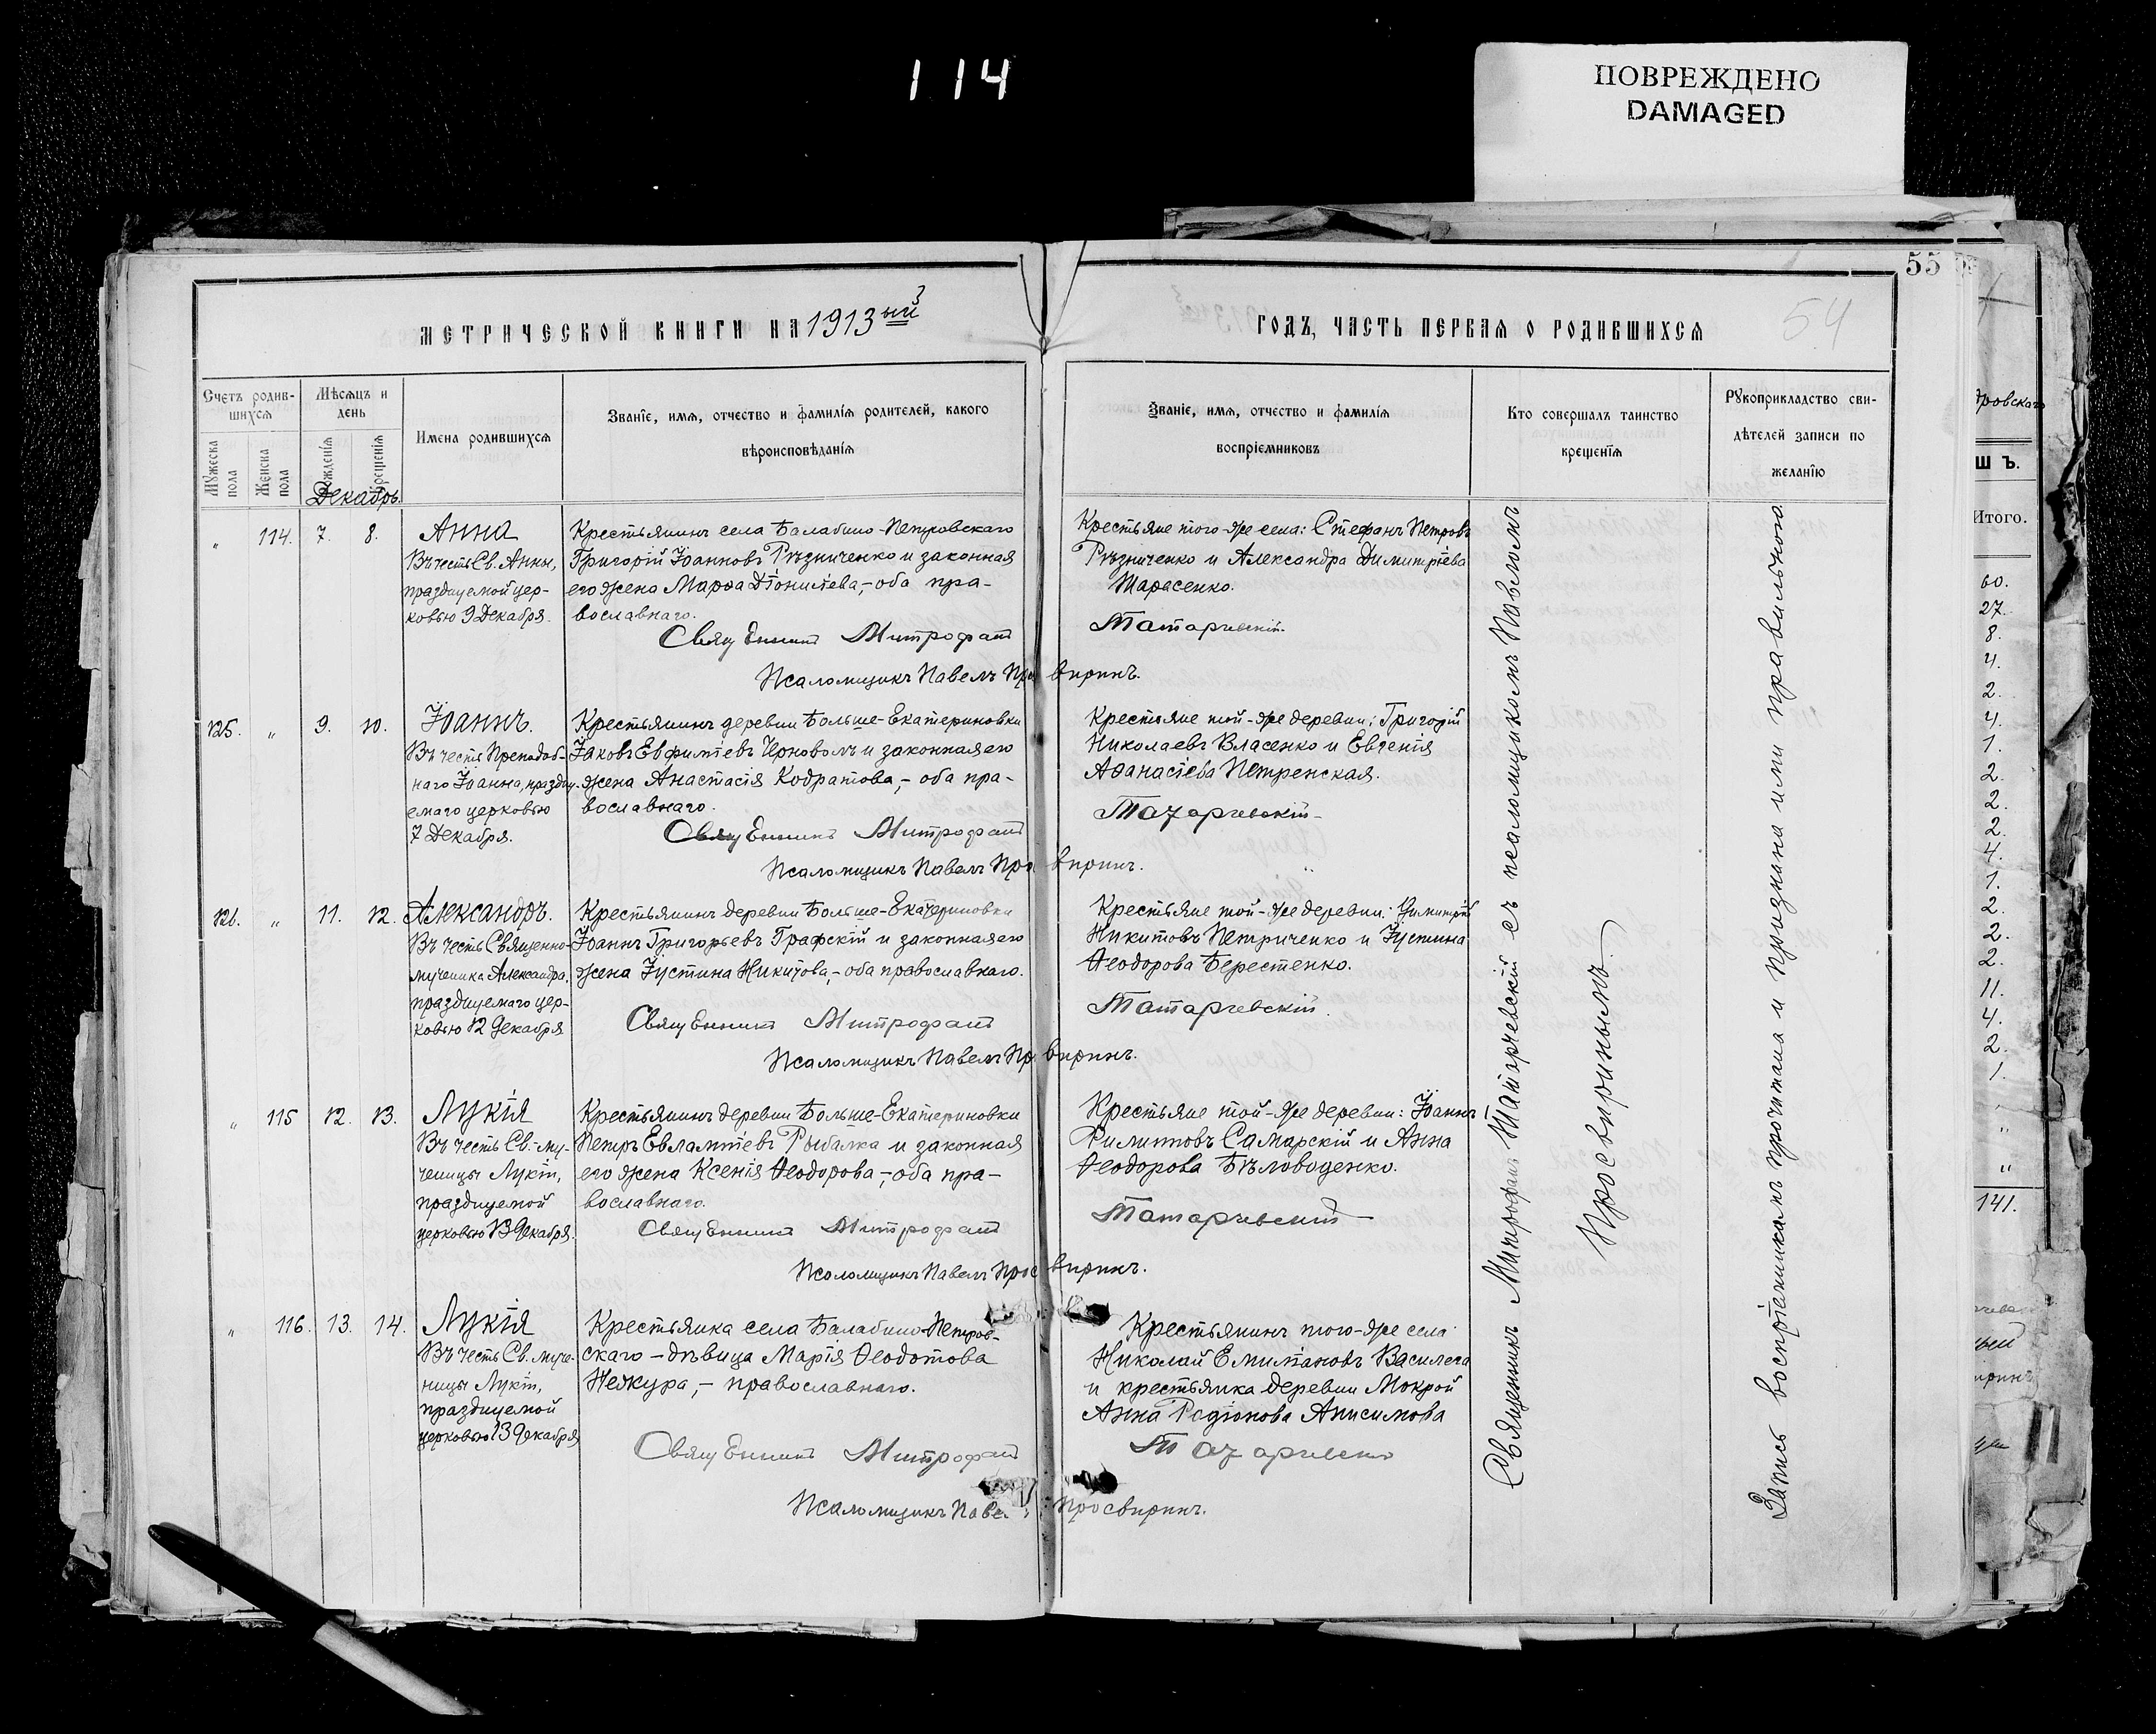 114
ПОВРЕЖДЕНО
DAMAGED
55
54
МЕТРИЧЕСКОЙ КНИГИ НА 1913ый
ГОДЪ, ЧАСТЬ ПЕРВАЯ О РОДИВШИХСЯ
Счетъ родив-
шихся
Мужеска
пола
Женска
пола
Мѣсяцъ и
день
Рожденія
Крещенія
Имена родившихся
Званіе, имя, отчество и фамилія родителей, какого
вѣроисповѣданія
Званіе, имя, отчество и фамилія
воспріемниковъ
Кто совершалъ таинство
крещенія
Рукоприкладство сви-
дѣтелей записи по
желанію
Декабрь.
„ 114. 7. 8.
Анна
Въ честь Св. Анны,
празднуемой цер-
ковью 9 Декабря.
Крестьянинъ села Балабино-Петровскаго
Григорій Іоанновъ Рѣзниченко и законная
его жена Марѳа Діонисіева,- оба пра-
вославнаго.
Крестьяне того-же села: Стефанъ Петровъ
Рѣзниченко и Александра Димитріева
Тарасенко.
Священникъ Митрофанъ Татарчевскій.
Псаломщикъ Павелъ Просвиринъ.
125. „ 9. 10.
Іоаннъ.
Въ честь Преподоб-
наго Іоанна, праздну-
емаго церковью
7 Декабря.
Крестьянинъ деревни Больше-Екатериновки
Іаковъ Евфиміевъ Чорноволъ и законная его
жена Анастасія Кодратова,- оба пра-
вославнаго.
Крестьяне той-же деревни: Григорій
Николаевъ Власенко и Евгенія
Аѳанасіева Петренская.
Священникъ Митрофанъ Татарчевскій
Псаломщикъ Павелъ Просвиринъ.
126. „ 11. 12.
Александръ.
Въ честь Священно-
мученика Александра,
празднуемаго цер-
ковью 12 Декабря
Крестьянинъ деревни Больше-Екатериновки
Іоаннъ Григорьевъ Графскій и законная его
жена Іустина Никитова,- оба православнаго.
Крестьяне той-же деревни: Димитрій
Никитовъ Петриченко и Іустина
Ѳеодорова Берестенко.
Священникъ Митрофанъ Татарчевскій.
Псаломщикъ Павелъ Просвиринъ.
„ 115 12. 13.
Лукія
Въ честь Св. му-
ченицы Лукіи,
празднуемой
церковью 13 Декабря.
Крестьянинъ деревни Больше-Екатериновки
Петръ Евлампіевъ Рыбалка и законная
его жена Ксенія Ѳеодорова,- оба пра-
вославнаго.
Крестьяне той-же деревни: Іоаннъ
Филипповъ Самарскій и Анна
Ѳеодорова Бѣловоденко.
Священникъ Митрофанъ Татарчевскій
Псаломщикъ Павелъ Просвиринъ.
„ 116. 13. 14.
Лукія
Въ честь Св. муче-
ницы Лукіи,
празднуемой
церковью 13 Декабря
Крестьянка села Балабино-Петров-
скаго - дѣвица Марія Ѳеодотова
Нежура,- православнаго.
Крестьянинъ того-же села
Николай Емиліановъ Василега
и крестьянка деревни Мокрой
Анна Родіонова Анисимова
Священникъ Митрофанъ Татарчевскій
Псаломщикъ Павелъ Просвиринъ.
Священникъ Митрофанъ Татарчевскій съ псаломщикомъ Павломъ
Просвиринымъ.
Запись воспріемникамъ прочитана и признана ими правильною
дровскаго
Ш Ъ.
Итого.
60.
27.
8.
4.
2.
4.
1.
2.
2.
2.
4.
1.
2.
2.
2.
11.
4.
2.
1.
„
„
„
141.